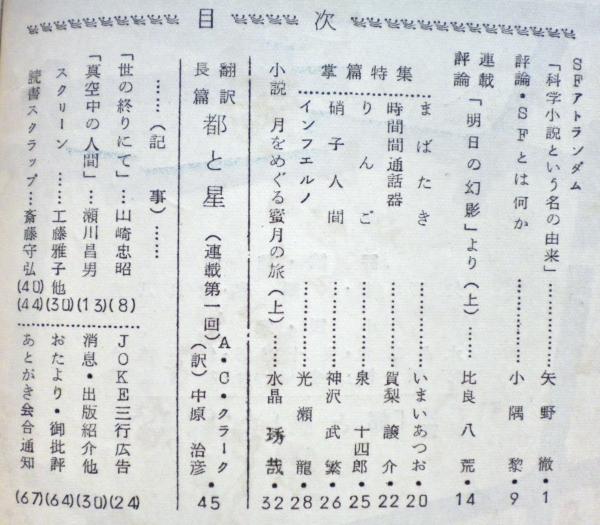 目次
SFアトランダム
「科学小説という名の由来」…………矢野徹・1
評論・SFとは何か…………小隅黎・9
連載評論「明日の幻影」より(上)……比良八荒・14
掌篇特集
まばたき…………いまいあつお・20
時間間通話器…………賀梨譲介・22
りんご…………泉十四郎・25
硝子人間…………神沢武繁・26
インフェルノ…………光瀬龍・28
小説 月をめぐる蜜月の旅(上)……水晶琇哉・32
翻訳長篇 都と星(連載第一回) A・C・クラーク・(訳)中原治彦 45
……(記事)……
「世の終りにて」…山崎忠昭(8)
「真空中の人間」…瀬川昌男(13)
スクリーン……工藤雅子他(30)
読書スクラップ…斎藤守弘(40)(44)
JOKE三行広告(24)
消息・出版紹介他(30)
おたより・御批評(64)
あとがき会合通知(67)